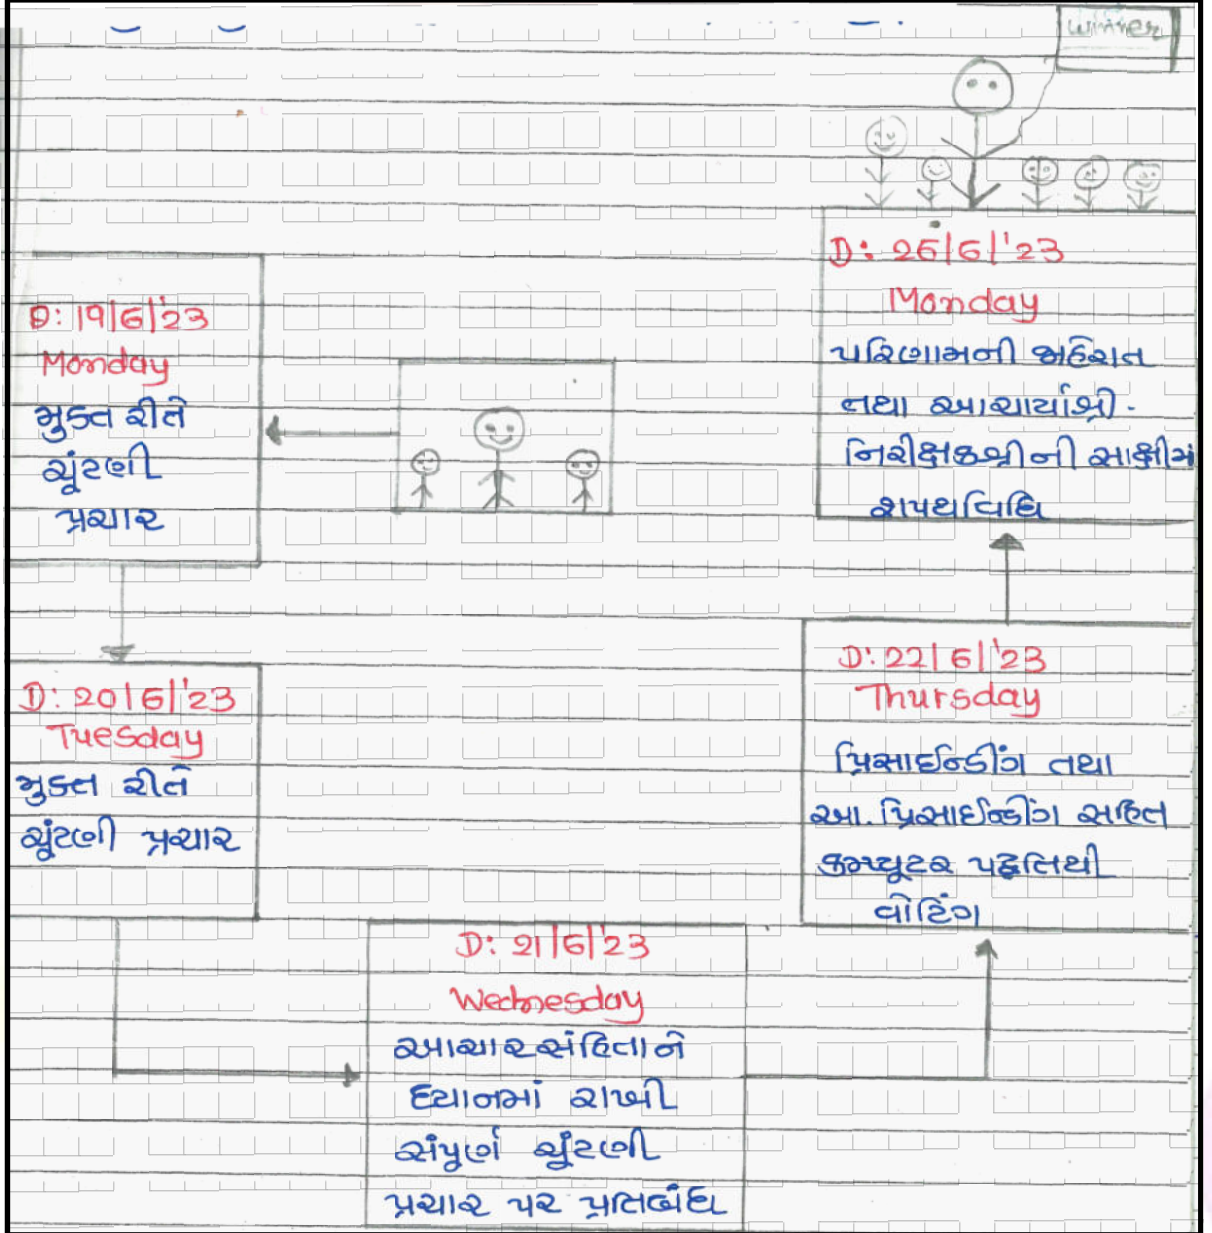 winner
D: 19/6/'23
Monday
મુક્ત રીતે
ચૂંટણી
પ્રચાર
D: 20/6/'23
Tuesday
મુક્ત રીતે
ચૂંટણી પ્રચાર
D: 21/6/'23
Wednesday
આચારસંહિતાને
ધ્યાનમાં રાખી
સંપૂર્ણ ચૂંટણી
પ્રચાર પર પ્રતિબંધ
D: 22/6/'23
Thursday
પ્રિસાઈન્ડીંગ તથા
આ. પ્રિસાઈન્ડીંગ સહિત
કમ્પ્યૂટર પદ્ધતિથી
વોટિંગ
D: 26/6/'23
Monday
પરિણામની જાહેરાત
તથા આચાર્યાશ્રી.
નિરીક્ષકશ્રીની સાક્ષીમાં
શપથવિધિ